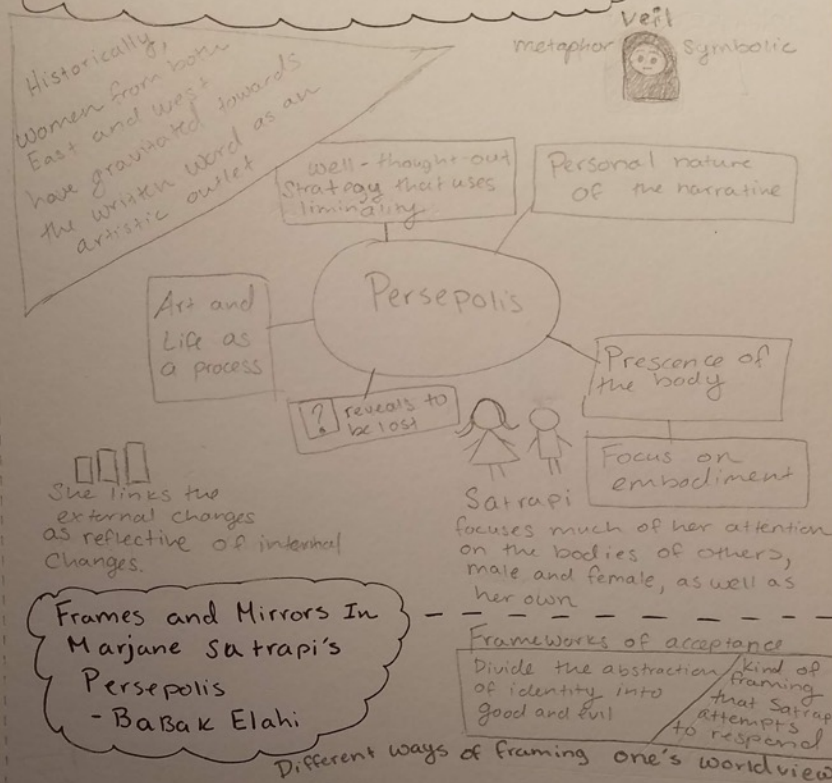 Veil
metaphor symbolic
Historically,
women from both
East and west
have gravitated towards
the written word as an
artistic outlet
well-thought-out
Strategy that uses
liminality
Personal nature
of the narrative
Persepolis
Art and
Life as
a process
? reveals to
be lost
Prescence of
the body
Focus on
embodiment
She links the
external changes
as reflective of internal
changes.
Satrapi
focuses much of her attention
on the bodies of others,
male and female, as well as
her own
Frames and Mirrors In
Marjane Satrapi's
Persepolis
- BaBak Elahi
Frameworks of acceptance
Divide the abstraction
of identity into
good and evil
Kind of
framing
that Satrap
attempts
to respond
Different ways of framing one's worldview